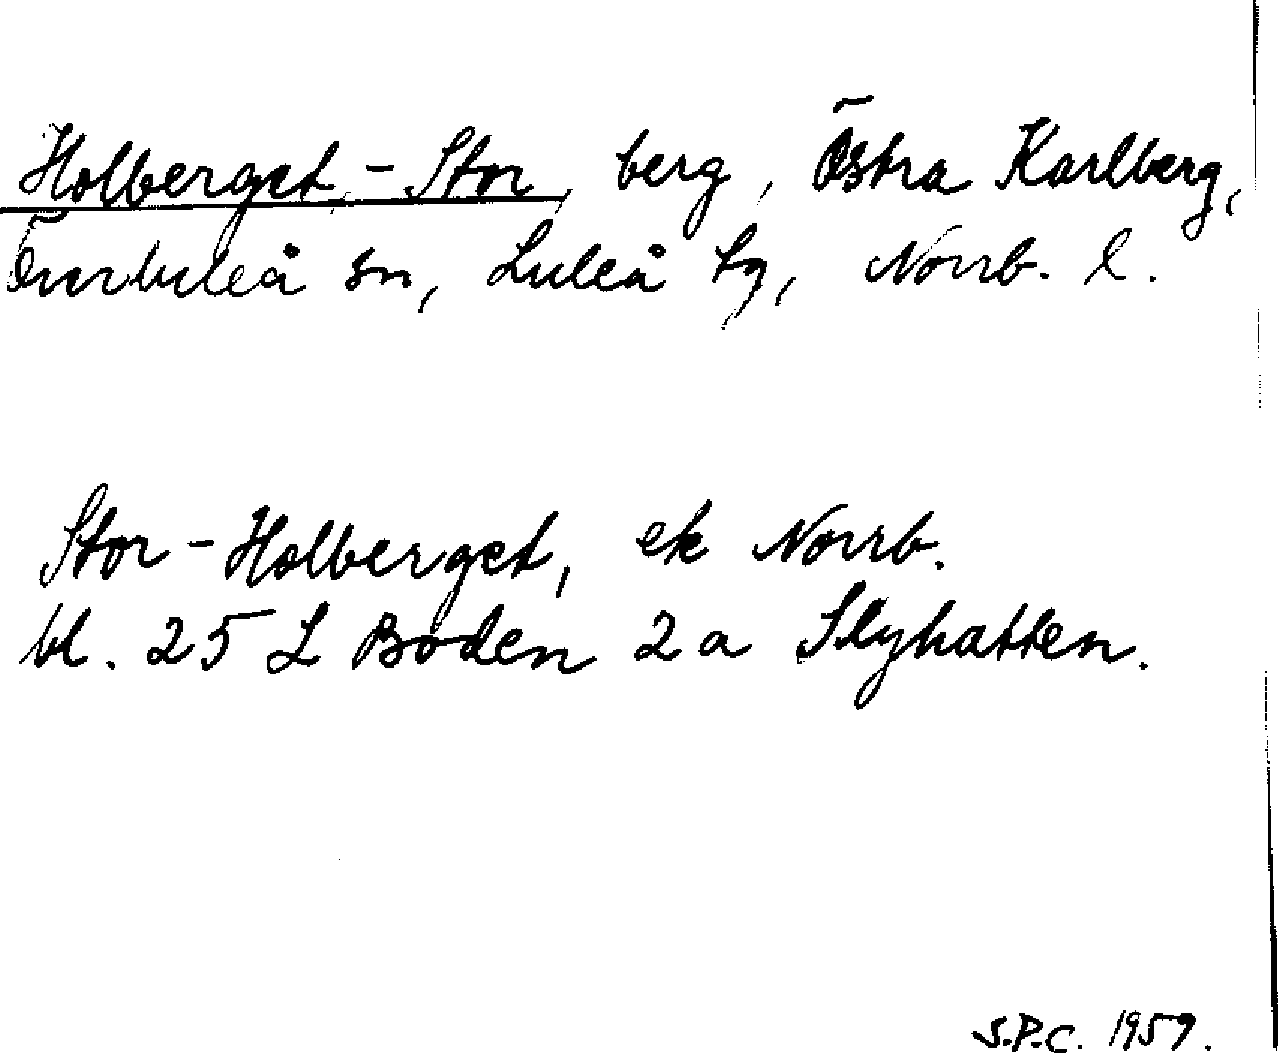 Holberget, -Stor, berg, Östra Karlberg,
Överluleå sn, Luleå tg, Norrb. l.
Stor-Holberget, ek Norrb.
bl. 25 L Boden 2a Slyhatten.
S.P.C. 1959.